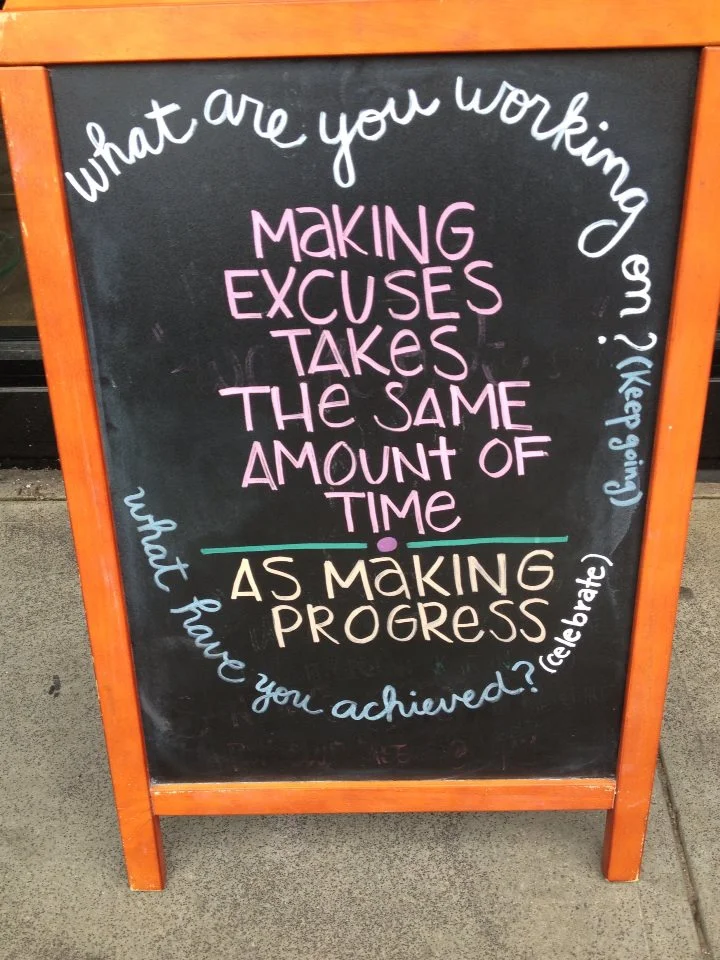 what are you working on? (Keep going)
MaKING
EXCUSES
TAKeS
THe SAME
AMOUNt OF
TIMe
AS MaKING
PROGReSS
what have you achieved? (celebrate)